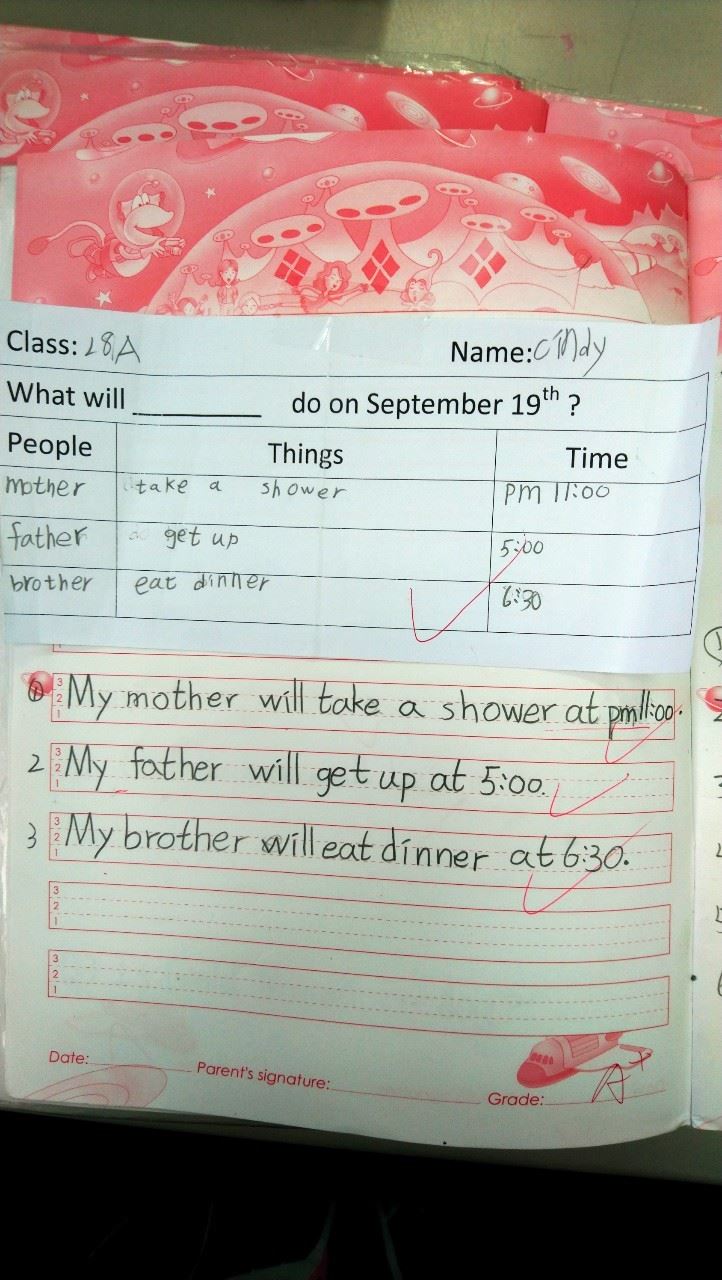 Class: 28A Name: cindy
What will __________ do on September 19th ?
People Things Time
mother take a shower pm 11:00
father get up 5:00
brother eat dinner 6:30
① 3 2 1 My mother will take a shower at pm11:00.
2 3 2 1 My father will get up at 5:00.
3 3 2 1 My brother will eat dinner at 6:30.
3 2 1
3 2 1
Date: Parent's signature: Grade: A+